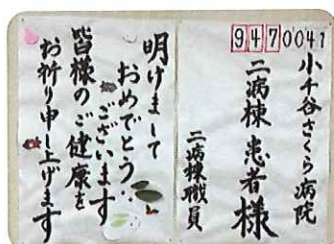 9470041
小千谷さくら病院
二病棟患者様
二病棟職員
明けまして
おめでとう
ございます
皆様のご健康を
お祈り申し上げます